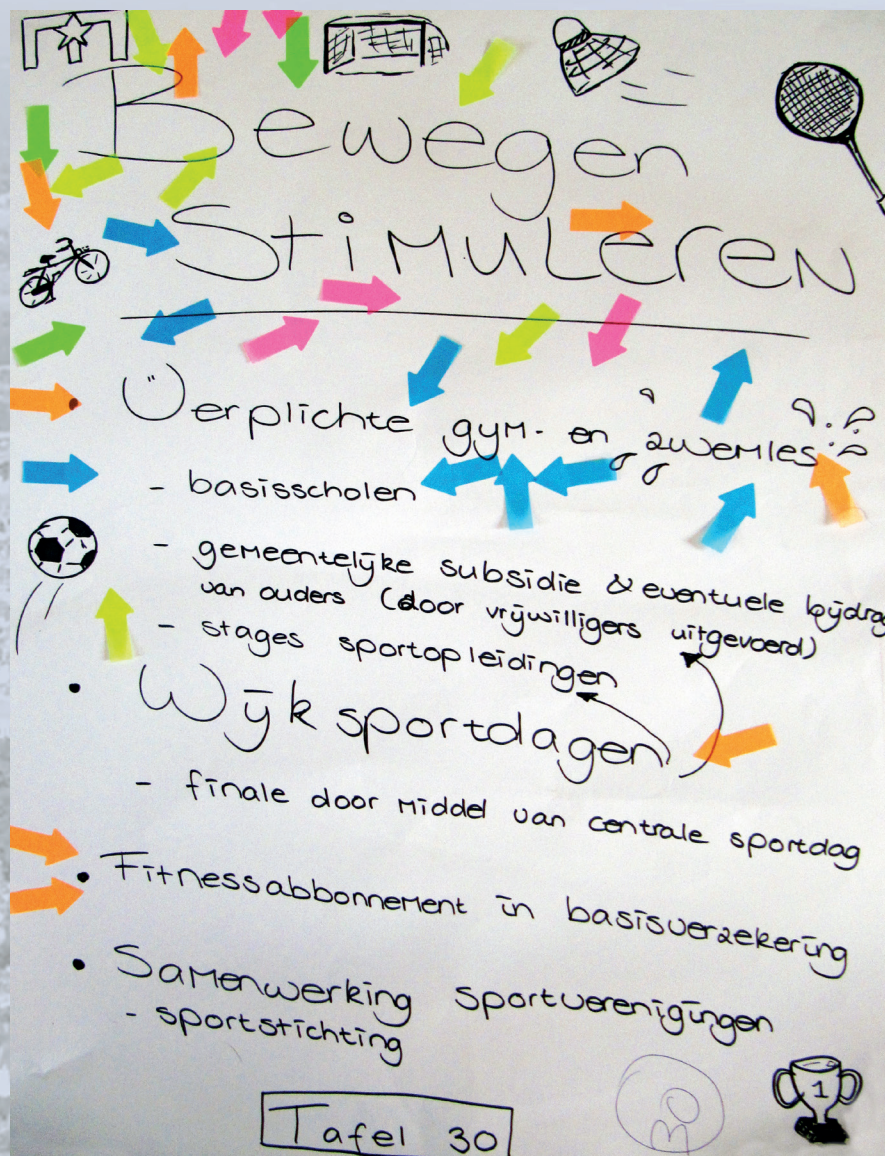 Bewegen
Stimuleren
• Verplichte gym- en zwemles
- basisscholen
- gemeentelijke subsidie & eventuele bijdrag
van ouders (door vrijwilligers uitgevoerd)
- stages sportopleidingen
• Wijksportdagen
- finale door middel van centrale sportdag
• Fitnessabbonnement in basisverzekering
• Samenwerking sportverenigingen
- sportstichting
30
1
Tafel 30